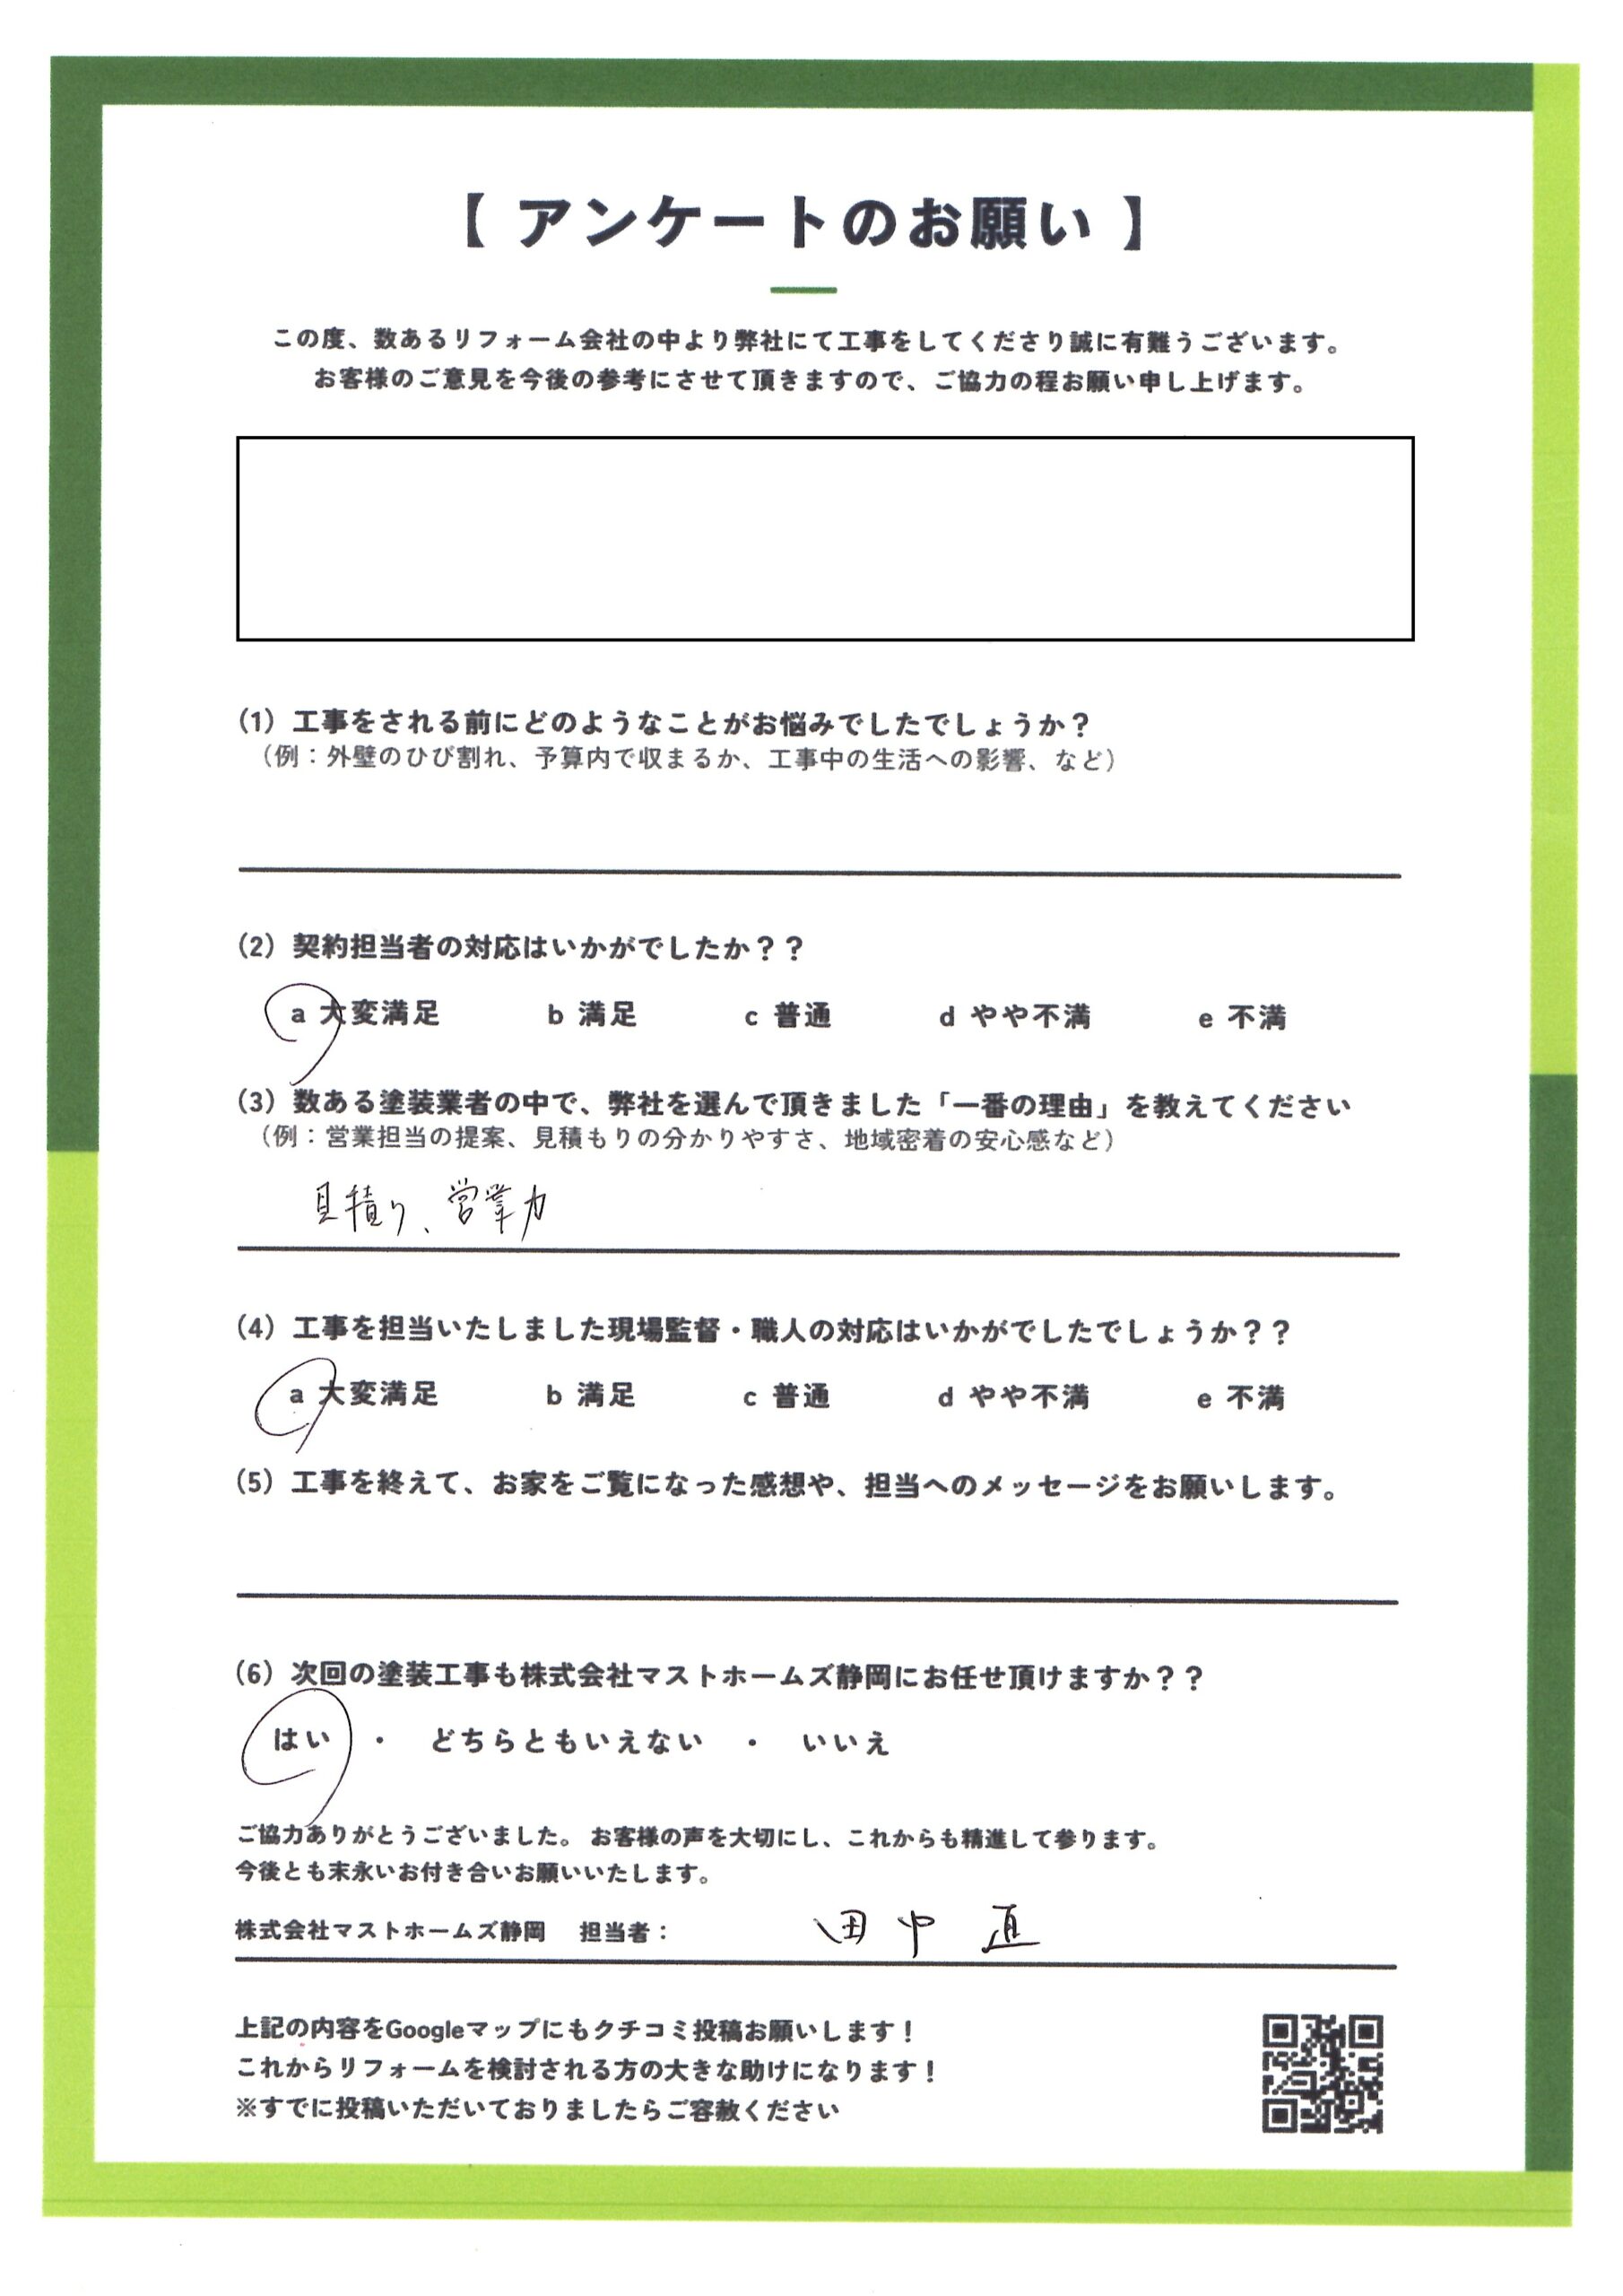 【 アンケートのお願い 】
この度、数あるリフォーム会社の中より弊社にて工事をしてくださり誠に有難うございます。
お客様のご意見を今後の参考にさせて頂きますので、ご協力の程お願い申し上げます。
(1) 工事をされる前にどのようなことがお悩みでしたでしょうか？
（例：外壁のひび割れ、予算内で収まるか、工事中の生活への影響、など）
(2) 契約担当者の対応はいかがでしたか？？
a 大変満足 b 満足 c 普通 d やや不満 e 不満
(3) 数ある塗装業者の中で、弊社を選んで頂きました「一番の理由」を教えてください
（例：営業担当の提案、見積もりの分かりやすさ、地域密着の安心感など）
見積り、営業力
(4) 工事を担当いたしました現場監督・職人の対応はいかがでしたでしょうか？？
a 大変満足 b 満足 c 普通 d やや不満 e 不満
(5) 工事を終えて、お家をご覧になった感想や、担当へのメッセージをお願いします。
(6) 次回の塗装工事も株式会社マストホームズ静岡にお任せ頂けますか？？
はい ・ どちらともいえない ・ いいえ
ご協力ありがとうございました。 お客様の声を大切にし、これからも精進して参ります。
今後とも末永いお付き合いお願いいたします。
株式会社マストホームズ静岡 担当者： 田中 直
上記の内容をGoogleマップにもクチコミ投稿お願いします！
これからリフォームを検討される方の大きな助けになります！
※すでに投稿いただいておりましたらご容赦ください